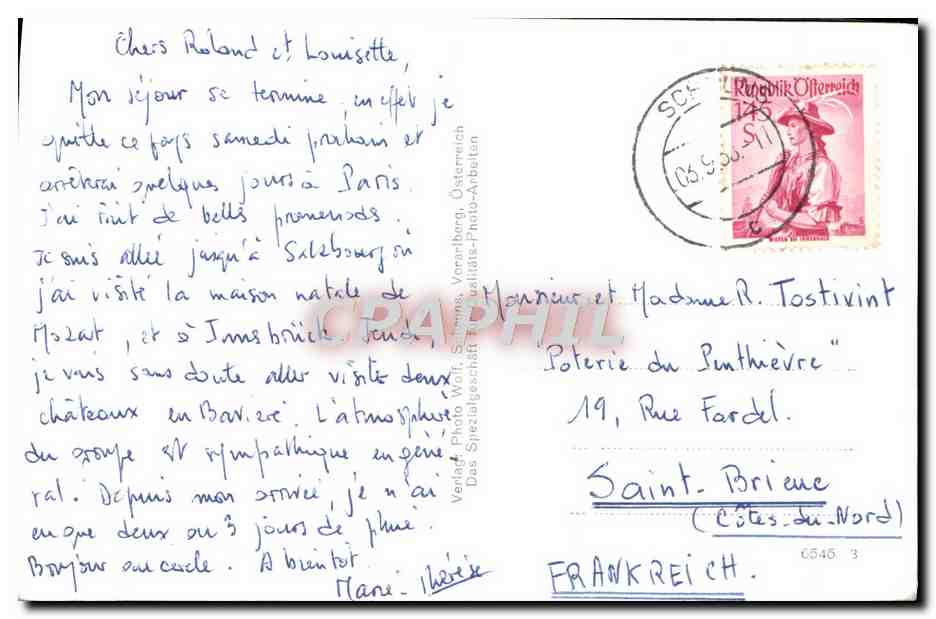 Chers Roland et Louisette,
Mon séjour se termine, en effet je
quitte ce pays samedi prochain et
arrêterai quelques jours à Paris.
J'ai fait de belles promenades.
Je suis allée jusqu'à Salzbourg où
j'ai visité la maison natale de
Mozart, et à Innsbrück. Jeudi,
je vais sans doute aller visiter deux
châteaux en Bavière. L'atmosphère
du groupe est sympathique en géné-
ral. Depuis mon arrivée, je n'ai
eu que deux ou 3 jours de pluie.
Bonjour au cercle. A bientôt.
Marie-Thérèse
Verlag: Photo Wolf, Schruns, Vorarlberg, Österreich
Das Spezialgeschäft für Qualitäts-Photo-Arbeiten
Republik Österreich
1.45
S
Monsieur et Madame R. Tostivint
"Poterie du Penthièvre"
19, Rue Fardel.
Saint-Brieuc
(Côtes-du-Nord)
FRANKREICH.
6545 3
CPAPHIL